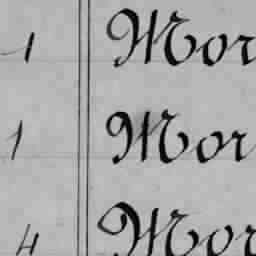 1 Mor
1 Mor
4 Mor